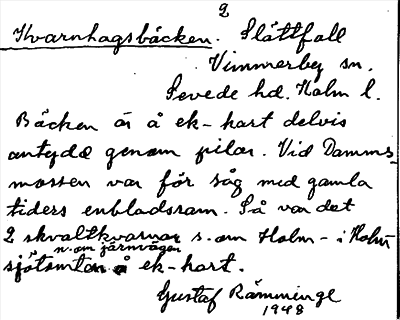 2
Kvarnhagsbäcken. Slåttfall
Vimmerby sn.
Sevede hd. Kalm l.
Bäcken är å ek-kart delvis
antydd genom pilar. Vid Damms-
mossen var för såg med gamla
tiders enbladsram. Så var det
2 skvaltkvarnar s.om Holm - i Holm
n.om järnvägen
sjötomten å ek-kart.
Gustaf Rämminge
1948